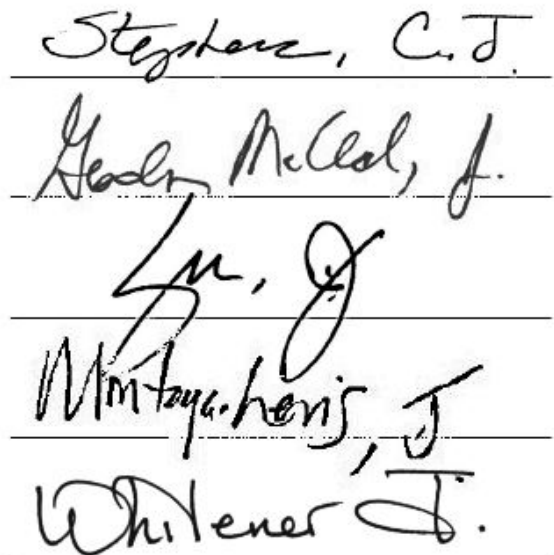 Stephens, C.J.
Gordon McCloud, J.
Yu, J.
Montoya-Lewis, J
Whitener J.